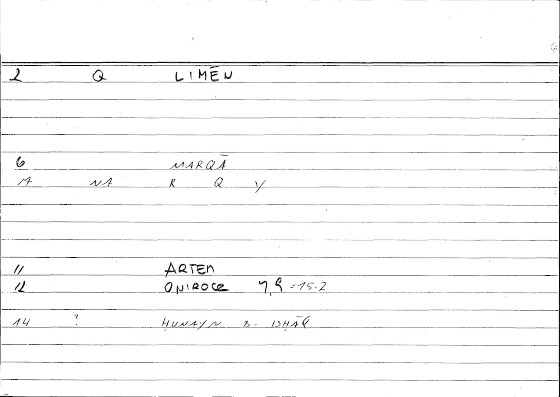 2 Q LIMĒN
6 MARQĀ
M NA R Q Y
11 ARTEM
12 ONIROCR 7,9 =15.2
14 ? HUNAYN B- ISHĀQ